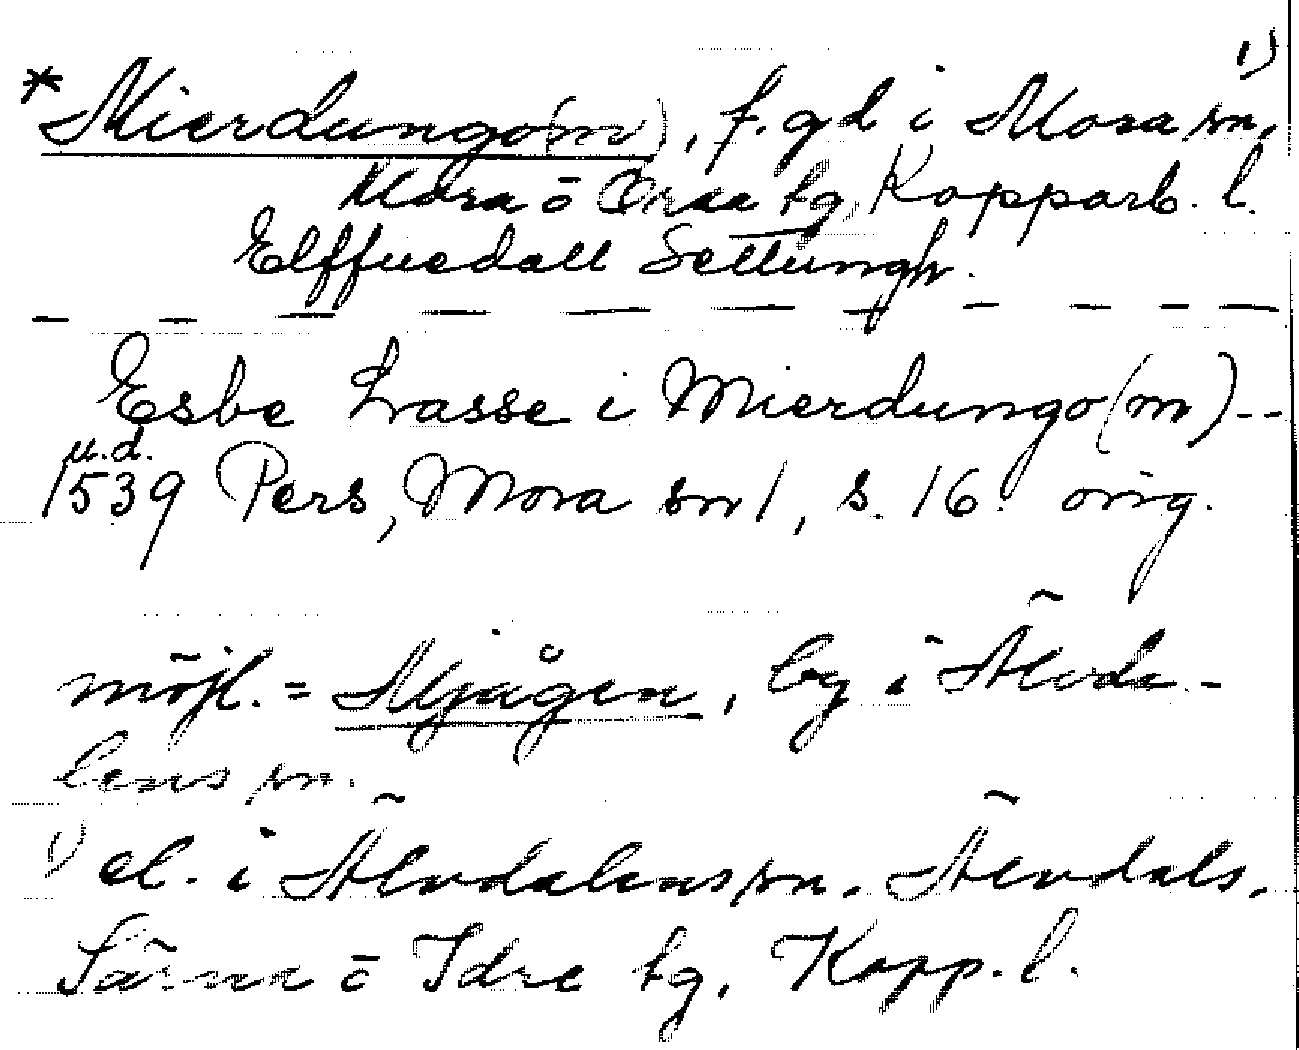 1)
* Mierdungo(m), f. gd i Mora sn,
Mora o Orsa tg, Kopparb. l.
Elffuedall Settungh.
Esbe Lasse i Mierdungo(m)--
u.d.
1539 Pers, Mora sn 1, s. 16. orig.
möjl. = Mjågen, by i Älvda-
lens sn.
1) el. i Älvdalens sn. Älvdals,
Särna o Idre tg, Kopp. l.